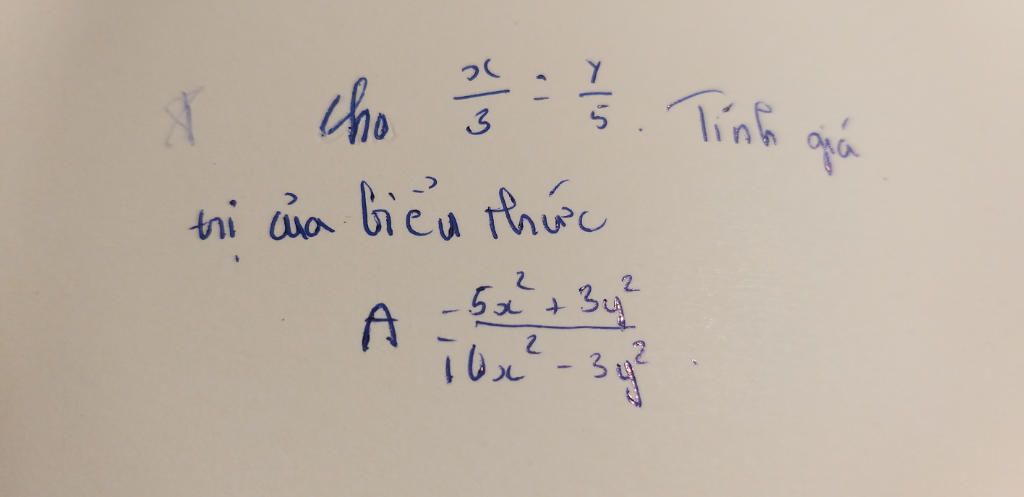 Cho x/3 = y/5. Tính giá
trị của biểu thức
A = (5x² + 3y²)/(10x² - 3y²).